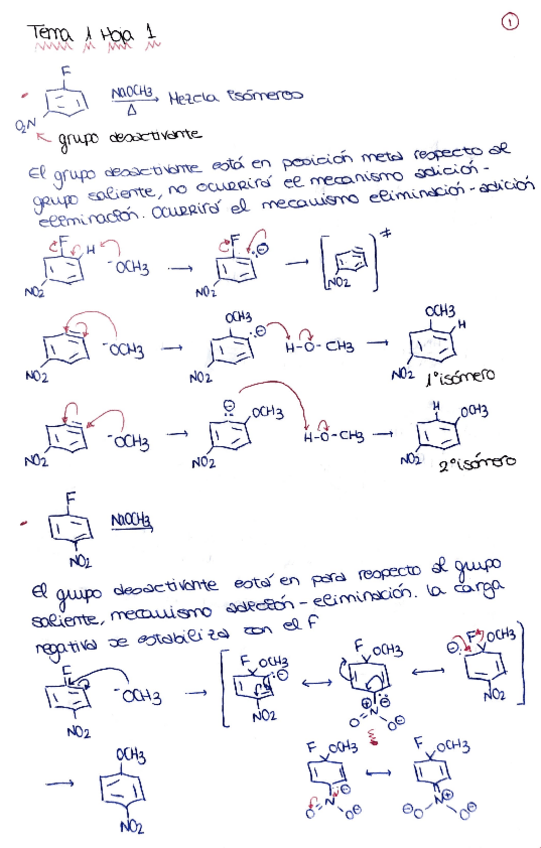 1
Tema 1 Hoja 1
F
NaOCH3
Δ
Mezcla isómeros
O2N
grupo desactivante
El grupo desactivante está en posición meta respecto al
grupo saliente, no ocurrirá el mecanismo adición-
eliminación. Ocurrirá el mecanismo eliminación-adición
F H ⁻OCH3 F ⊖ ≠
NO2 NO2 NO2
OCH3 OCH3
⁻OCH3 ⊖ H-O-CH3 H
NO2 NO2 NO2
1º isómero
⊖ H
⁻OCH3 OCH3 H-O-CH3 OCH3
NO2 NO2 NO2
2º isómero
F
NaOCH3
NO2
El grupo desactivante está en para respecto al grupo
saliente, mecanismo adición-eliminación. La carga
negativa se estabiliza con el F
F ⁻OCH3 F OCH3 ⊖ F OCH3 ⊖ F OCH3
NO2 NO2 ⊕ ⊖ O=N O⊖ NO2
OCH3 F OCH3 F OCH3
NO2 O=N ⊖ O⊖ ⊖O N⊕ O⊖